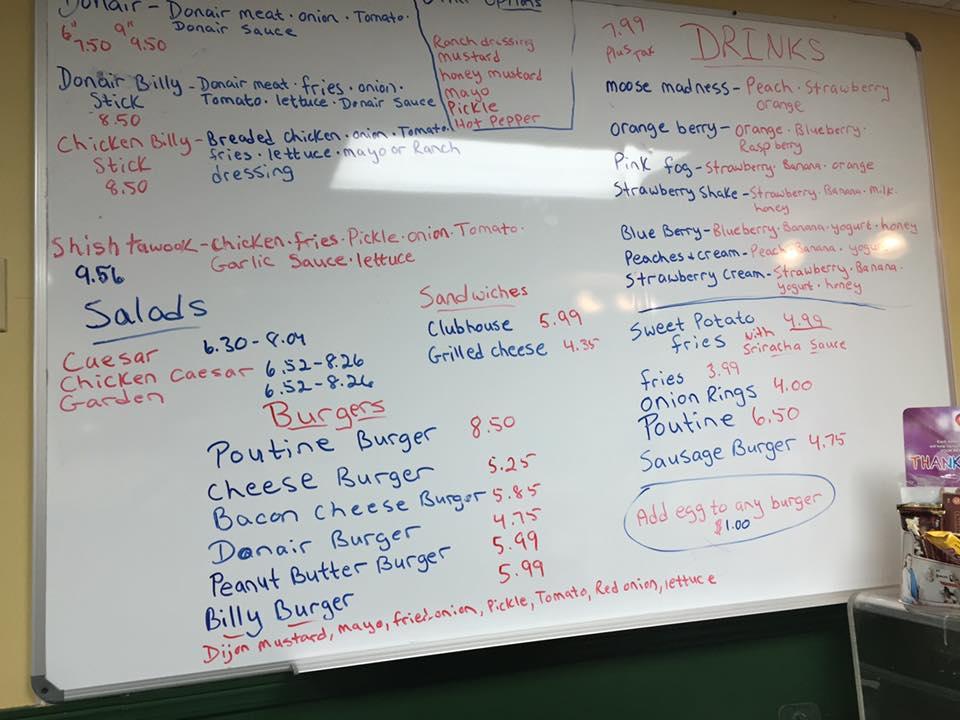 Donair - Donair meat · onion · Tomato ·
6" 9" Donair sauce
7.50 9.50
Donair Billy - Donair meat · fries · onion ·
Stick Tomato · lettuce · Donair Sauce
8.50
Chicken Billy - Breaded chicken · onion · Tomato
Stick fries · lettuce · mayo or Ranch
8.50 dressing
Shish tawook - chicken · fries · Pickle · onion · Tomato ·
9.56 Garlic Sauce · lettuce
Options
Ranch dressing
mustard
honey mustard
mayo
Pickle
Hot Pepper
Salads
Caesar 6.30 - 8.04
Chicken Caesar 6.52 - 8.26
Garden 6.52 - 8.26
Sandwiches
Clubhouse 5.99
Grilled cheese 4.35
Burgers
Poutine Burger 8.50
Cheese Burger 5.25
Bacon Cheese Burger 5.85
Donair Burger 4.75
Peanut Butter Burger 5.99
Billy Burger 5.99
Dijon mustard, mayo, fried onion, Pickle, Tomato, Red onion, lettuce
7.99
plus tax
DRINKS
moose madness - Peach · Strawberry
orange
orange berry - orange · Blueberry ·
Raspberry
Pink fog - Strawberry · Banana · orange
Strawberry Shake - Strawberry · Banana · milk ·
honey
Blue Berry - Blueberry · Banana · yogurt · honey
Peaches + cream - Peach · Banana · yogurt
Strawberry Cream - Strawberry · Banana ·
yogurt · honey
Sweet Potato 4.99
fries with
Sriracha Sauce
fries 3.99
onion Rings 4.00
Poutine 6.50
Sausage Burger 4.75
Add egg to any burger
$1.00
THANK